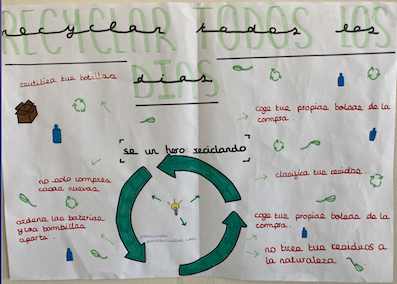 RECYCLAR TODOS LOS
recyclar todos los
DIAS
dias
reutiliza tus botellas
coge tus propias bolsas de la
compra.
se un hero reciclando
no solo compres
cosas nuevas
clasifica tus residuos.
ordena las baterias
y las bombillas
aparte.
coge tus propias bolsas de la
compra.
no tires tus residuos a
la naturaleza